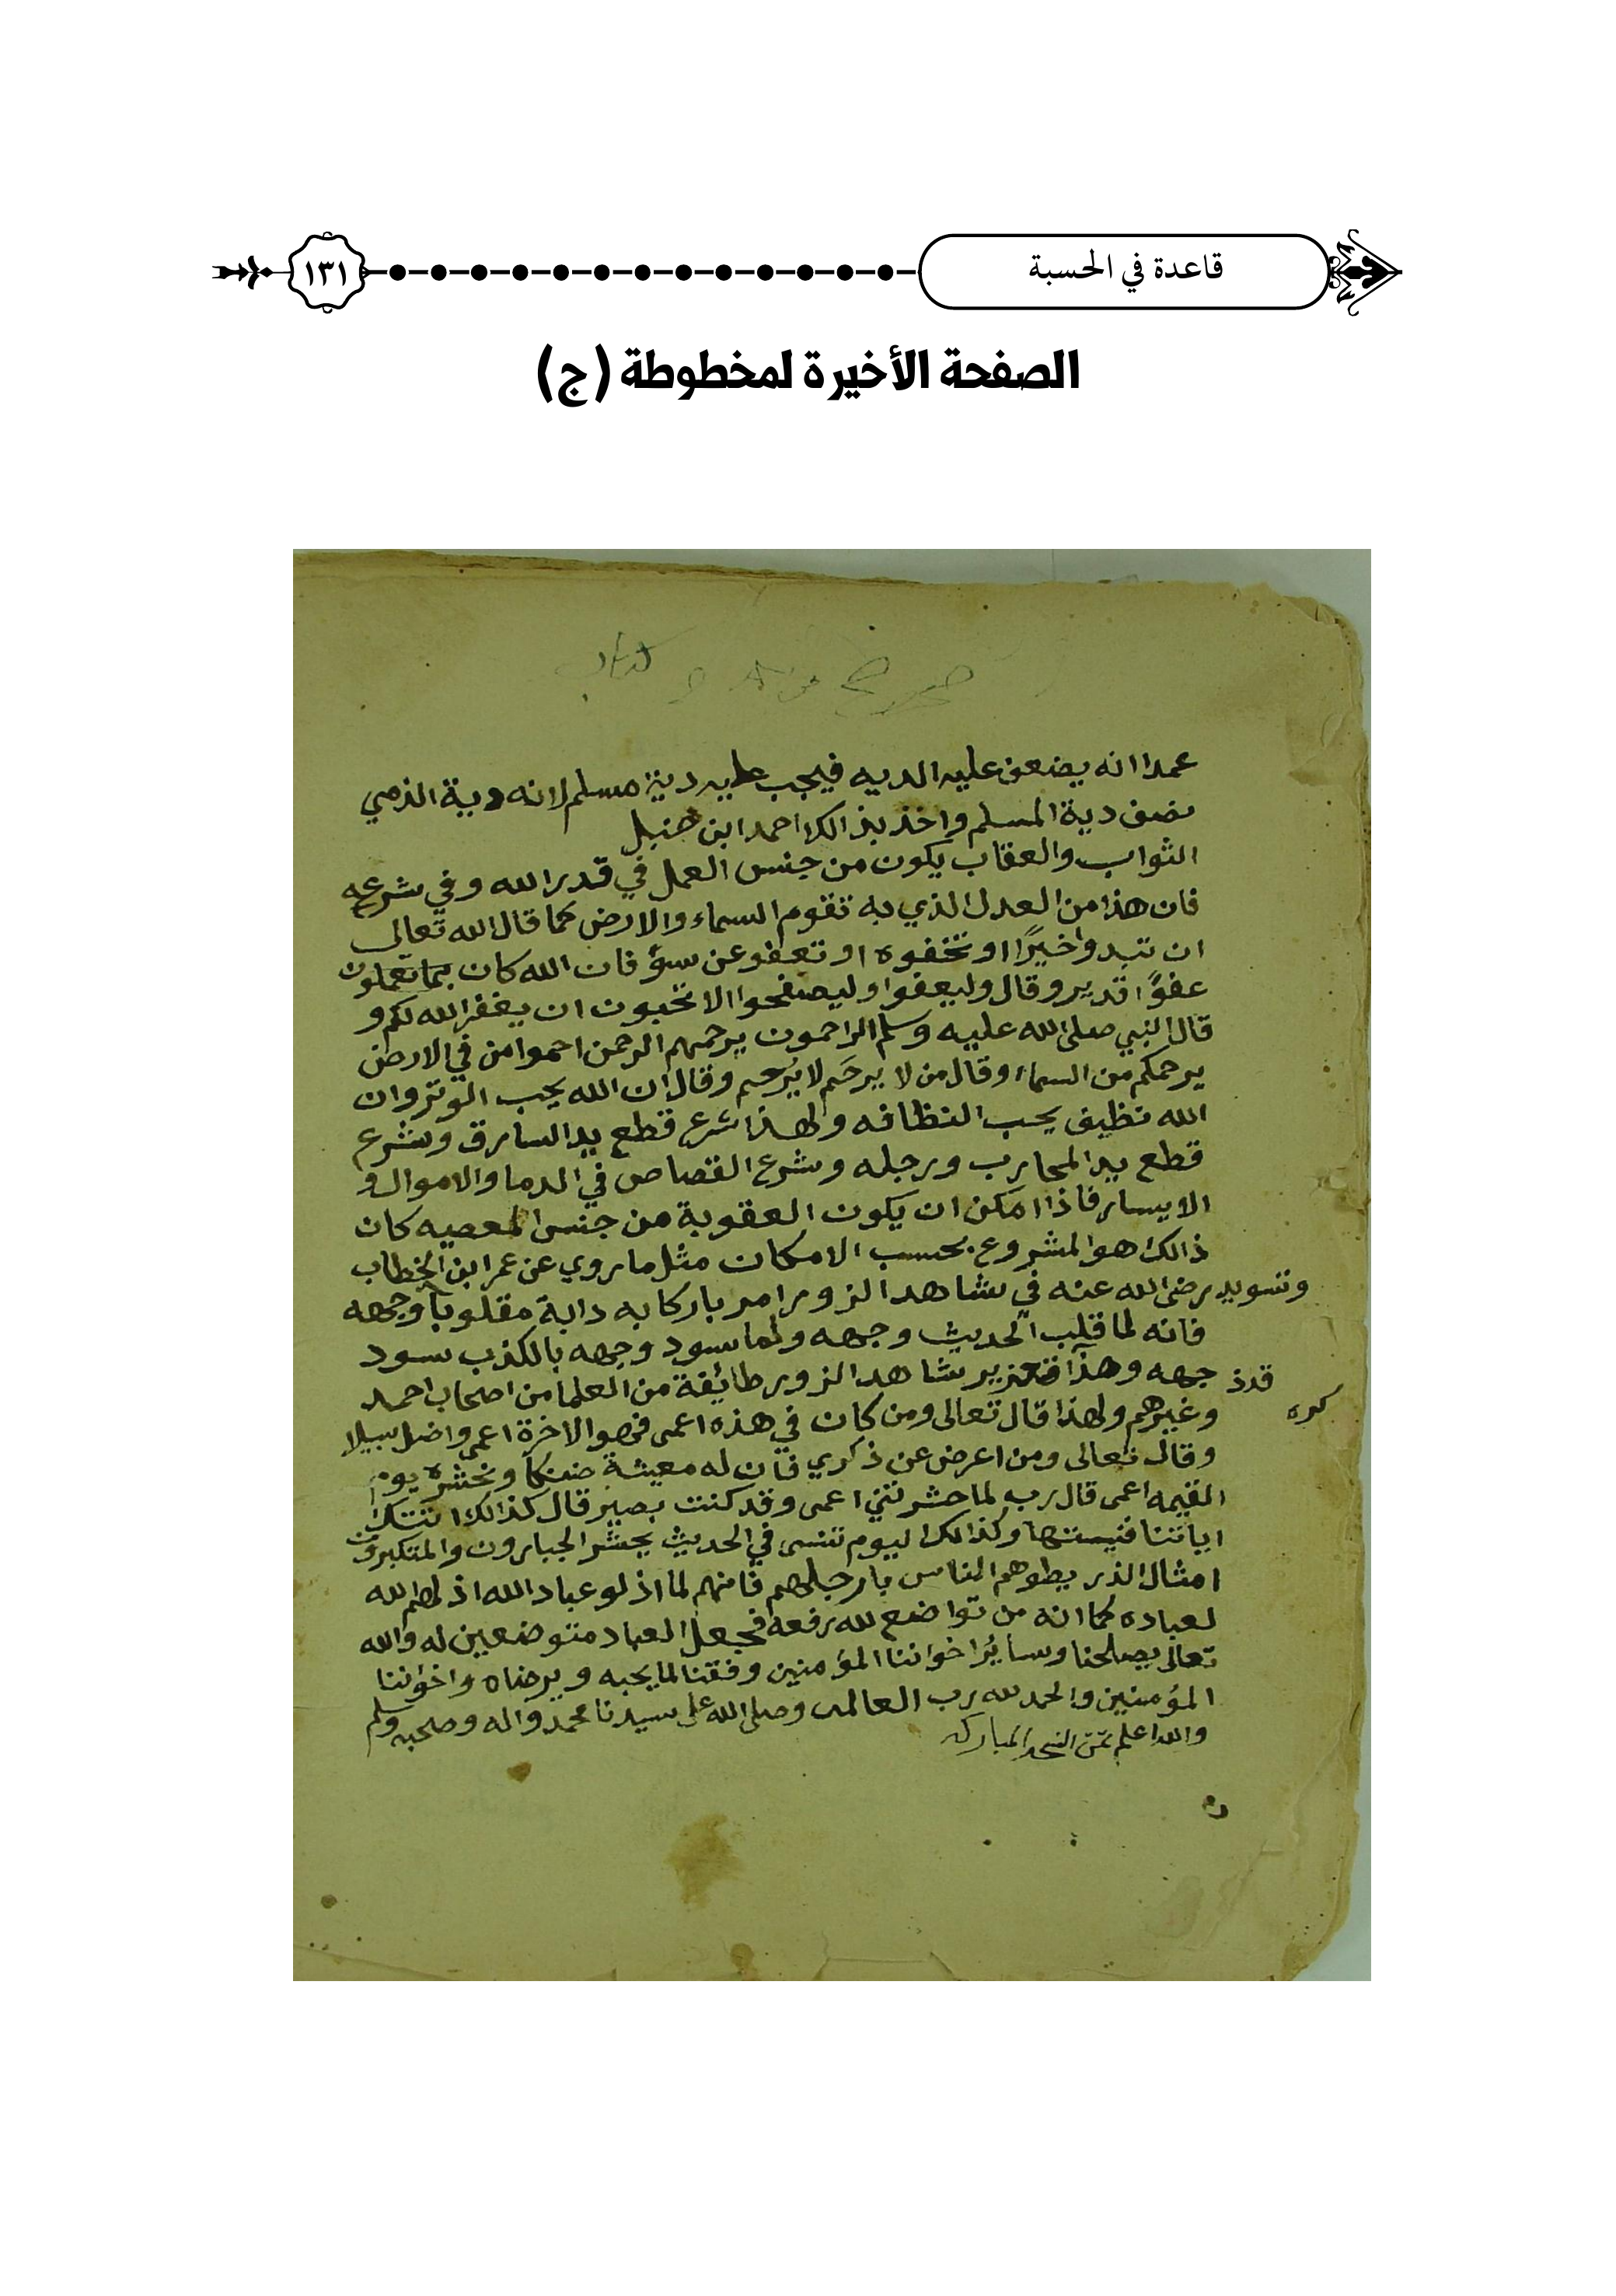 قاعدة في الحسبة
١٣١
الصفحة الأخيرة لمخطوطة (ج)
كتاب
عمدا انه يضعف عليه الديه فيجب عليه دية مسلم لانه دية الذمي
نصف دية المسلم واخذ بذالك احمد ابن حنبل
الثواب والعقاب يكون من جنس العمل في قدر الله وفي شرعه
فان هذا من العدل الذي به تقوم السماء والارض كما قال الله تعالى
ان تبدوا خيرًا او تخفوه او تعفو عن سؤ فان الله كان بما تعملون
عفوًا قدير وقال وليعفوا وليصفحوا الا تحبون ان يغفر الله لكم و
قال النبي صلى الله عليه وسلم الراحمون يرحمهم الرحمن احموا من في الارض
يرحمكم من السماء وقال من لا يرحَم لا يُرحم وقال ان الله يحب الوتر وان
الله نظيف يحب النظافه ولهذا شرع قطع يد السارق وشرع
قطع يد المحارب ورجله وشرع القصاص في الدما والاموال و
الايسار فاذا امكن ان يكون العقوبة من جنس المعصيه كان
ذالك هو المشروع بحسب الامكان مثل ما روي عن عمر ابن الخطاب
وتسويد رضى الله عنه في شاهد الزور امر باركابه دابة مقلوبا وجهه
فانه لما قلب الحديث وجهه ولما سود وجهه بالكذب سود
قدذ جهه وهذا تعزير شاهد الزور طائفة من العلما من اصحاب احمد
كره
وغيرهم ولهذا قال تعالى ومن كان في هذه اعمى فهو الاخرة اعمى واضل سبيلا
وقال تعالى ومن اعرض عن ذكري فان له معيشة ضنكا ونحشره يوم
القيمه اعمى قال رب لما حشرتني اعمى وقد كنت بصير قال كذالك اتتك
اياتنا فنيستها وكذالك اليوم تنسى في الحديث يحشر الجبارون والمتكبرون
امثال الذر يطوهم الناس بارجلهم فانهم لما اذلو عباد الله اذلهم الله
لعباده كما انه من تواضع لله رفعه فجعل العباد متوضعين له والله
تعالى يصلحنا وسائر اخواننا المؤمنين وفقنا لما يحبه ويرضاه واخواننا
المؤمنين والحمد لله رب العالمى وصلى الله على سيدنا محمد واله وصحبه وسلم
والله اعلم تمت النسخه المباركه